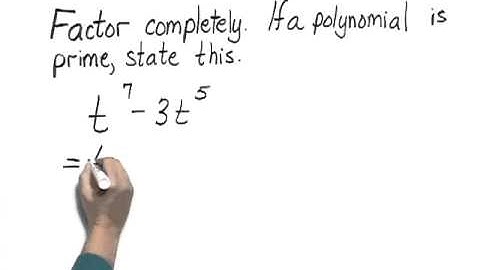 Factor completely. If a polynomial is
prime, state this.
t⁷ - 3t⁵
=